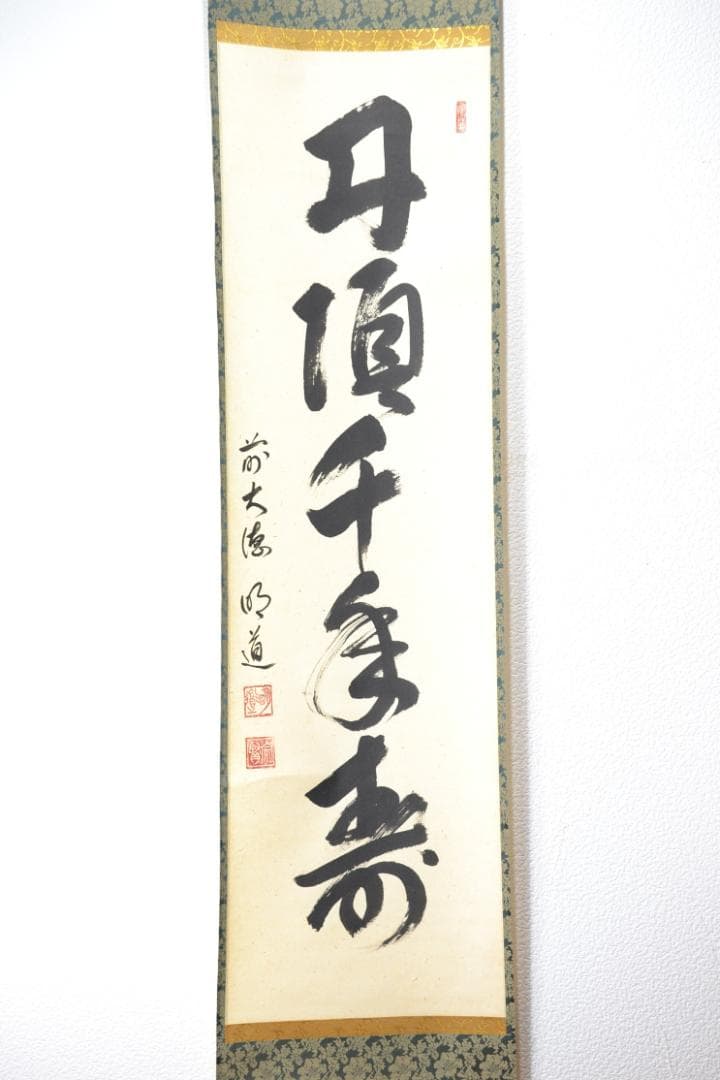 丹頂千年寿
前大徳 明道